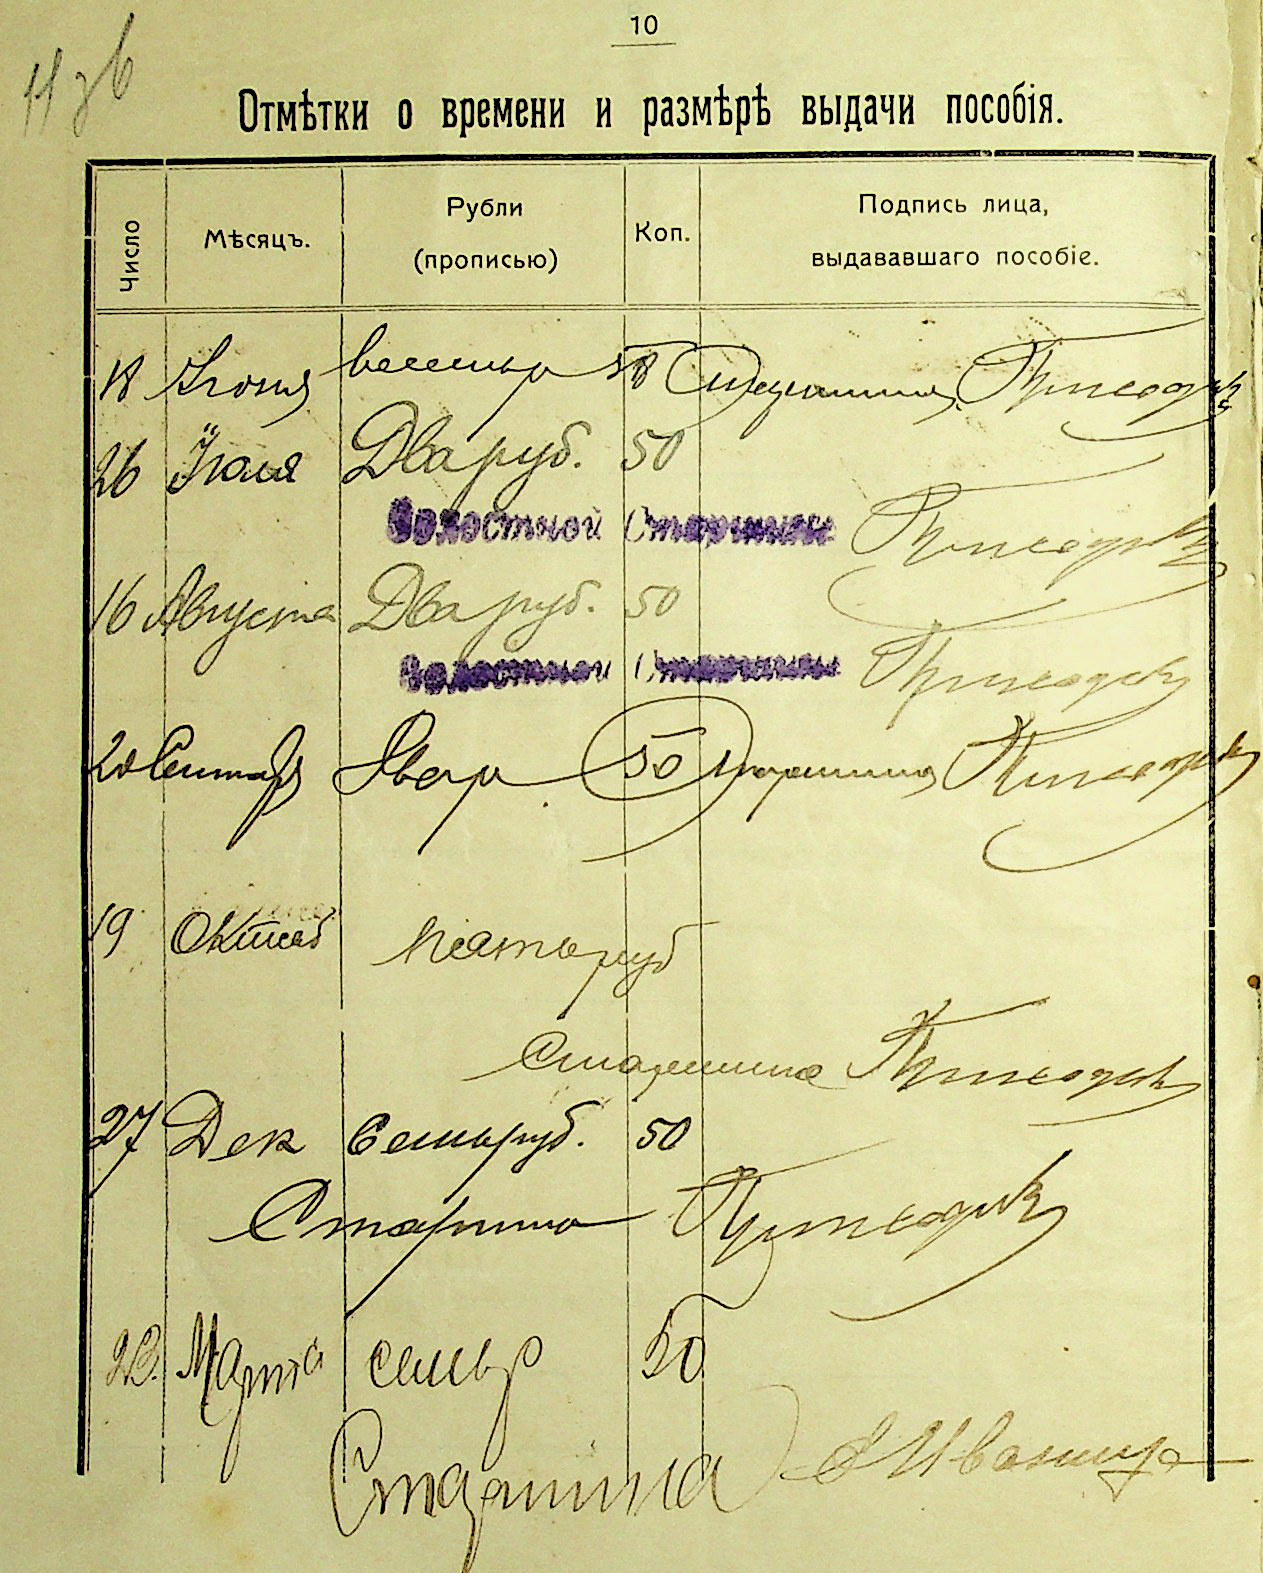 10
Отмѣтки о времени и размѣрѣ выдачи пособія.
Число
Мѣсяцъ.
Рубли
(прописью)
Коп.
Подпись лица,
выдававшаго пособіе.
18 Іюня 50 Старшина
26 Іюля Два руб. 50
Волостной Старшина
16 Августа Два руб. 50
Волостной Старшина
20 Сентяб Два р 50 Старшина
19 Октяб Пять руб
Старшина
27 Дек Семь руб. 50
Старшина
23. Марта семь р 50
Старшина